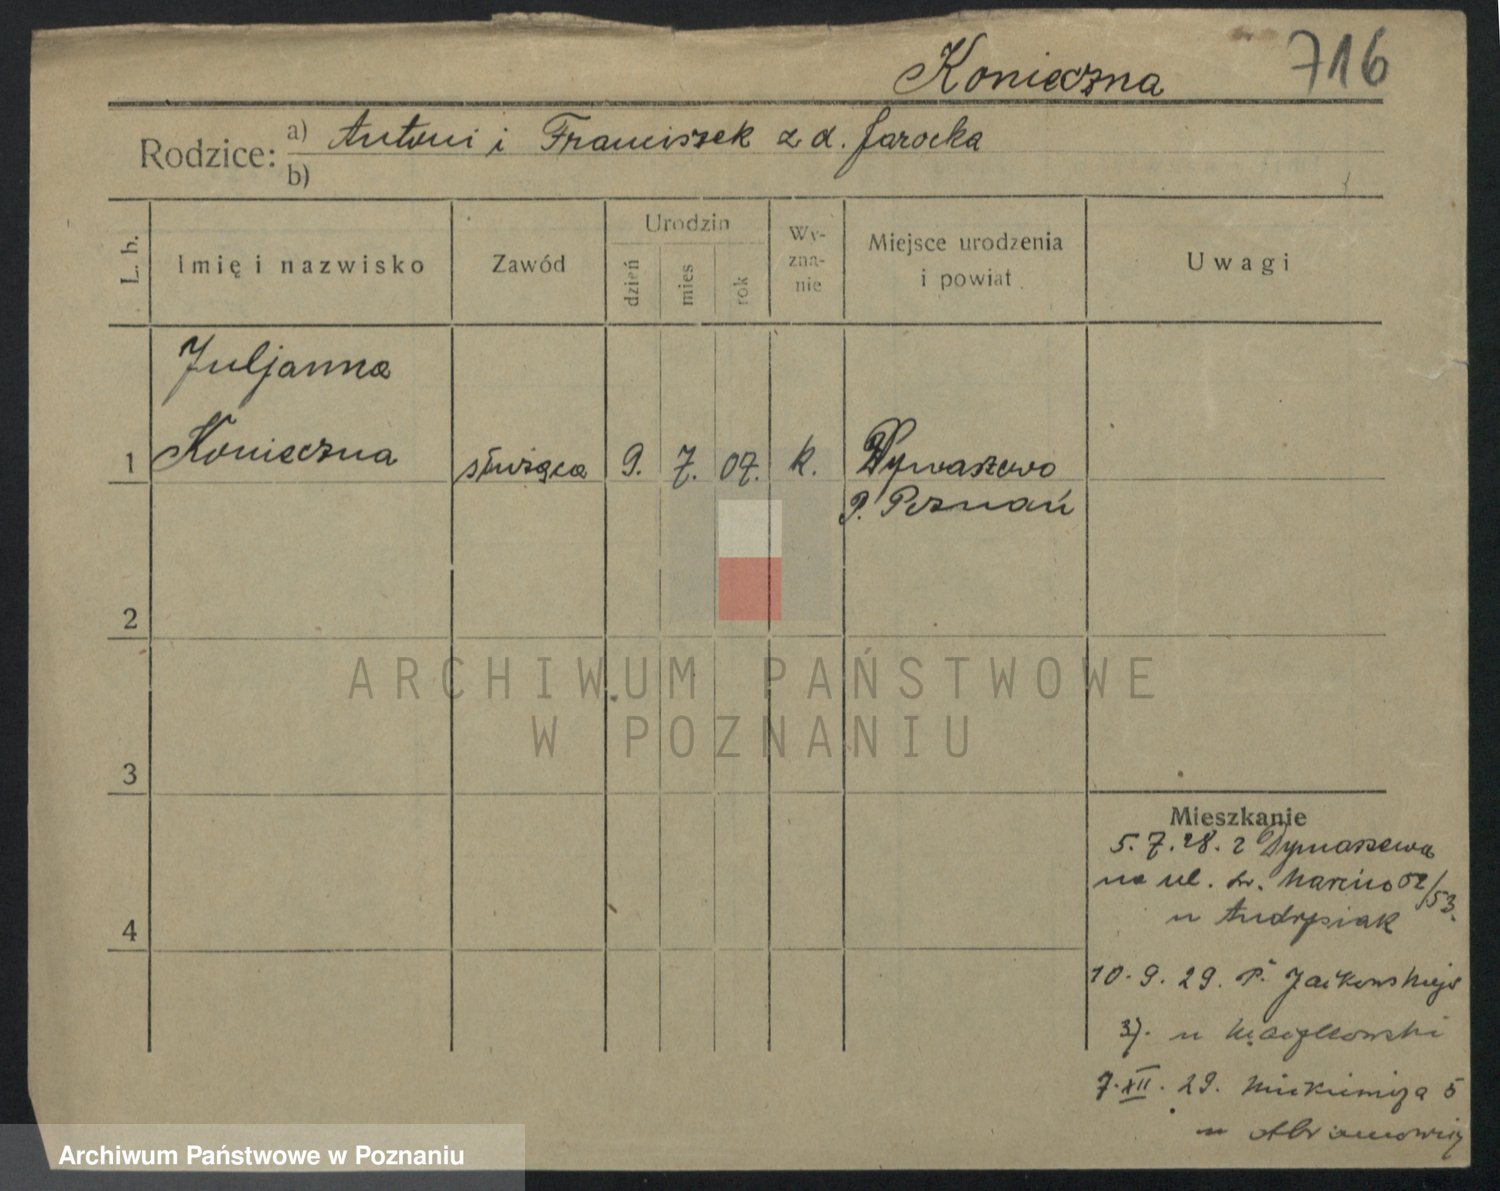 Konieczna 716
Rodzice: a) Antoni i Franciszek z d. Jarocka
b)
L. b.
Imię i nazwisko
Zawód
Urodzin
dzień
mies
rok
Wy-
zna-
nie
Miejsce urodzenia
i powiat
Uwagi
Juljanna
1 Konieczna służąca 9. 7. 07. k. Dymaszewo
P. Poznań
2
3
4
Mieszkanie
5.7.28. z Dymaszewa
na ul. św. Marcin 52/53.
u Andrysiak
10.9.29. P. Jackowskiego
37. u
7.XII.29. Mickiewicza 5
u Abramowicz
ARCHIWUM PAŃSTWOWE
W POZNANIU
Archiwum Państwowe w Poznaniu